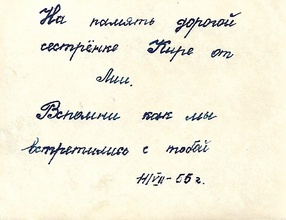 На память дорогой
сестрёнке Кире от
Лии.
Вспомни как мы
встретились с тобой
4/VII-56 г.